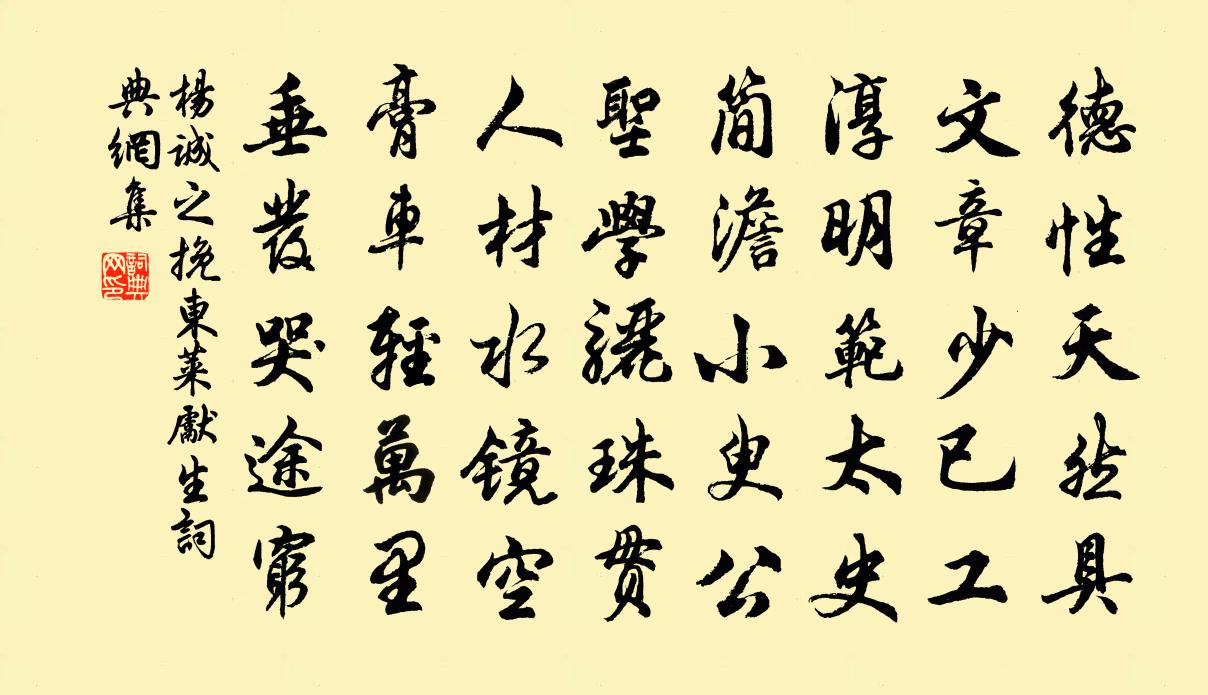 德性天然具
文章少已工
淳明範太史
簡澹小叟公
聖學驪珠貫
人材水鏡空
膏車輕萬里
垂發哭途窮
楊誠之挽東萊獻生詞
典網集
詞典网印